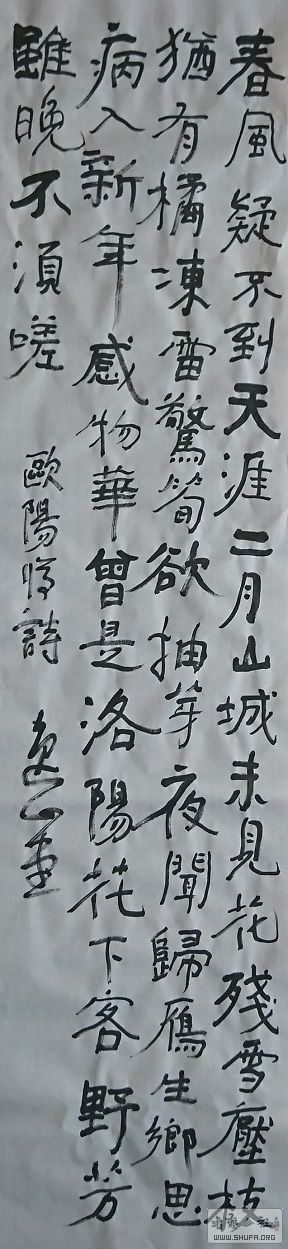 春風疑不到天涯二月山城未見花殘雪壓枝
猶有橘凍雷驚筍欲抽芽夜聞歸鴈生鄉思
病入新年感物華曾是洛陽花下客野芳
雖晚不須嗟
歐陽修詩
WWW.SHUFA.ORG